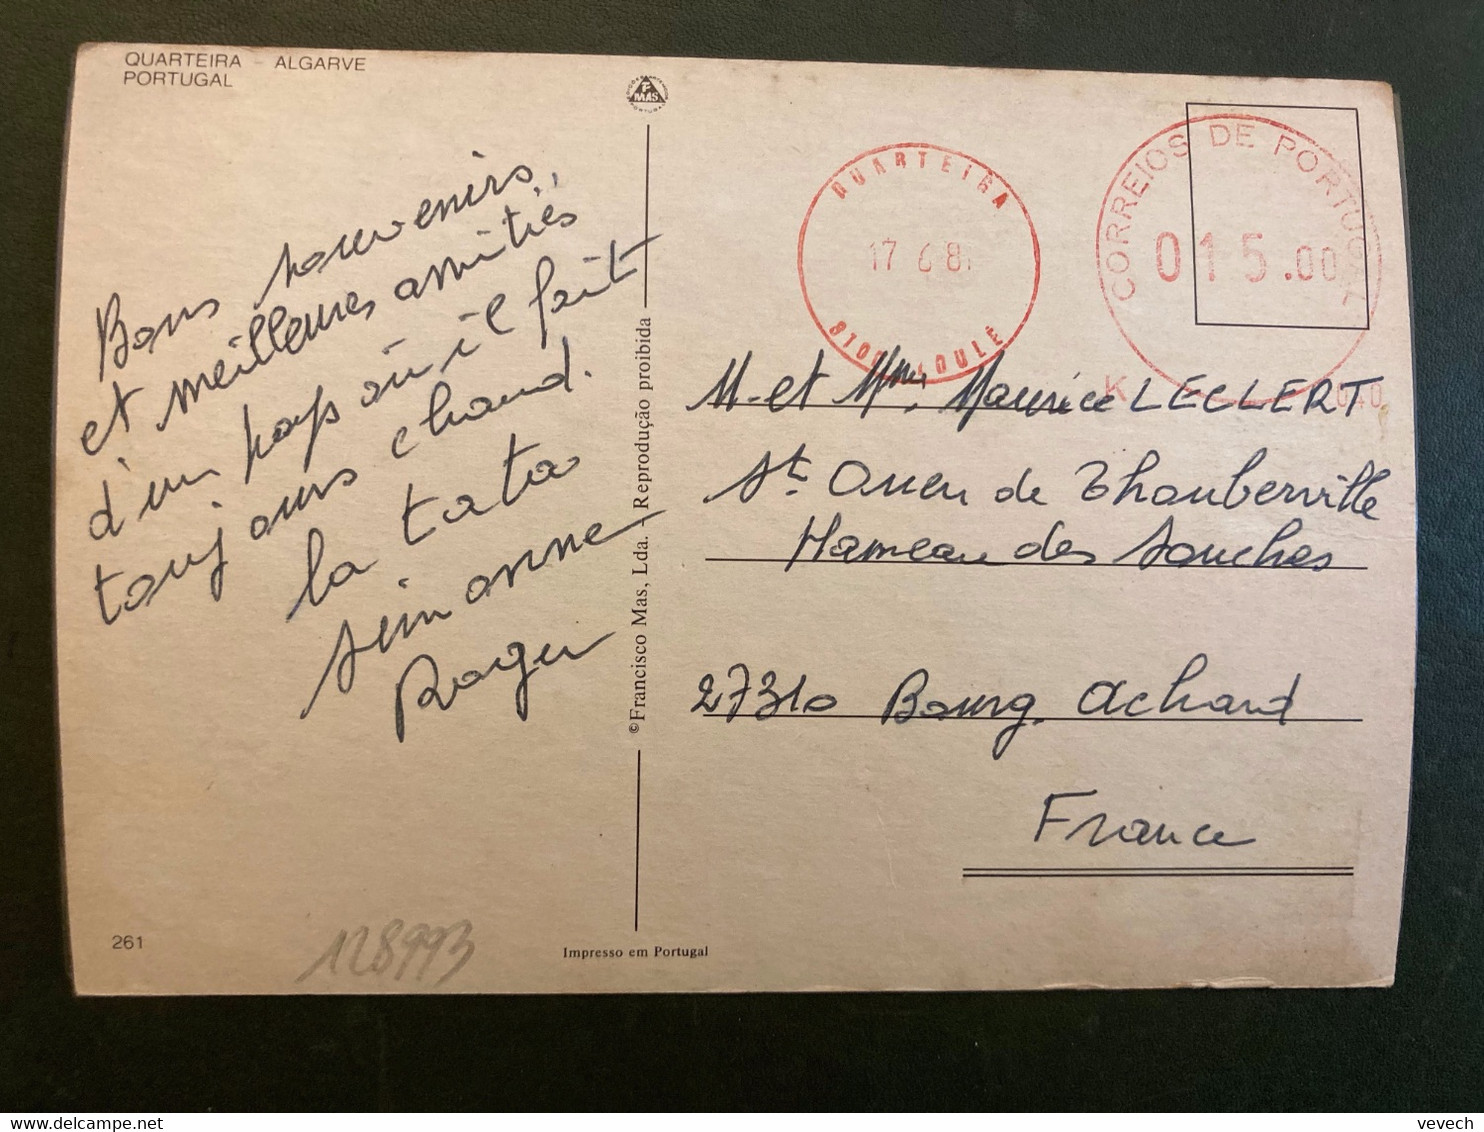 QUARTEIRA - ALGARVE
PORTUGAL
F
MAS
Bons souvenirs,
et meilleures amitiés
d'un pays où il fait
toujours chaud.
la tata
Simonne
Roger
©Francisco Mas, Lda. - Reprodução proibida
QUARTEIRA
17 6 8
LOULÉ
CORREIOS DE PORTUGAL
015.00
K
M. et Mme, Maurice LECLERT
St. Ouen de Thouberville
Hameau des Souches
27310 Bourg. Achard
France
261
128993
Impresso em Portugal
vevech